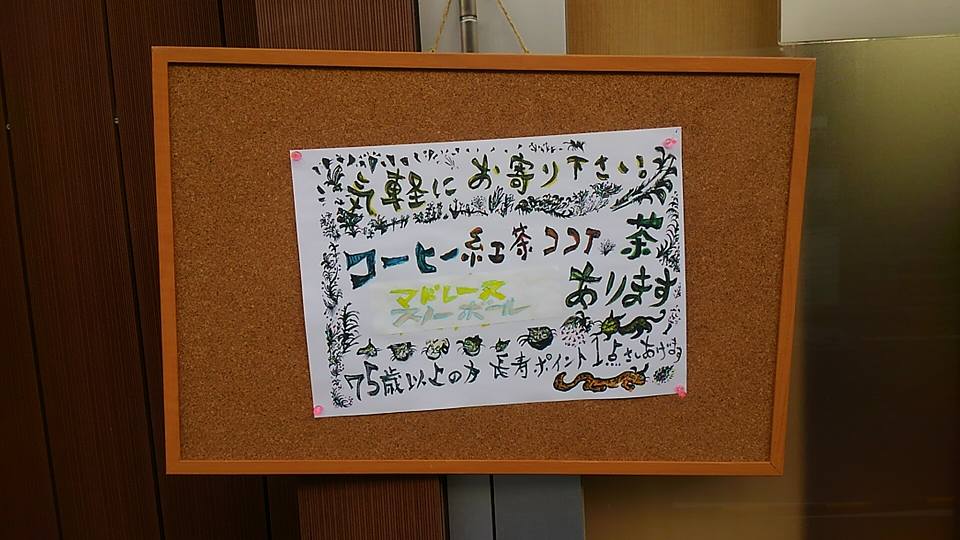 気軽にお寄り下さい!
コーヒー 紅茶 ココア 茶
あります
マドレーヌ
スノーボール
75歳以上の方 長寿ポイント1点さしあげます